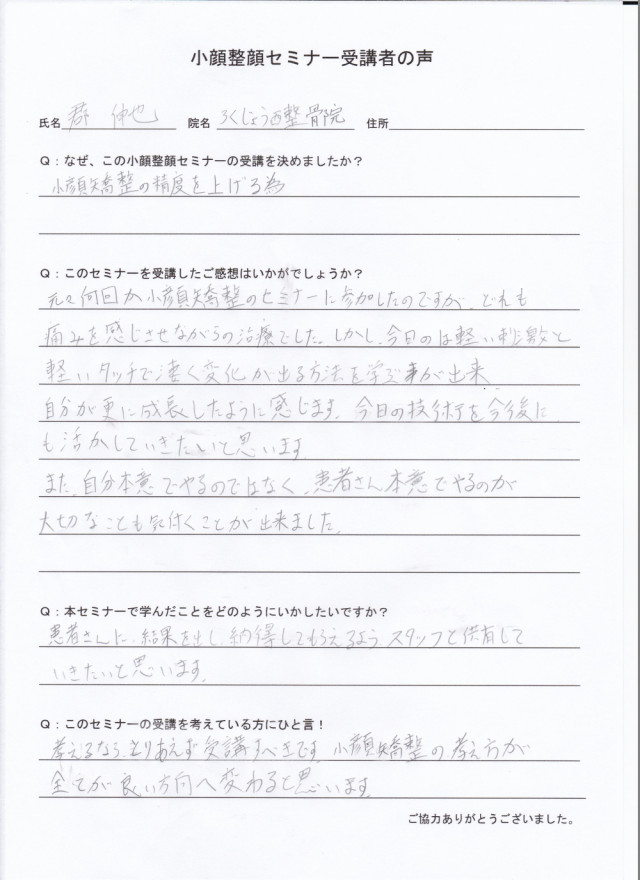 小顔整顔セミナー受講者の声
氏名 群 伸也 院名 ろくじょう西整骨院 住所
Q：なぜ、この小顔整顔セミナーの受講を決めましたか？
小顔矯整の精度を上げる為
Q：このセミナーを受講したご感想はいかがでしょうか？
元々何回か小顔矯整のセミナーに参加したのですが、どれも
痛みを感じさせながらの治療でした。しかし、今日のは軽い刺激と
軽いタッチで凄く変化が出る方法を学ぶ事が出来
自分が更に成長したように感じます。今日の技術を今後に
も活かしていきたいと思います
また、自分本意でやるのではなく、患者さん本意でやるのが
大切なことも気付くことが出来ました。
Q：本セミナーで学んだことをどのようにいかしたいですか？
患者さんに、結果を出し、納得してもらえるよう、スタッフと供有して
いきたいと思います。
Q：このセミナーの受講を考えている方にひと言！
考えるなら、とりあえず受講すべきです。小顔矯整の考え方が
全てが良い方向へ変わると思います。
ご協力ありがとうございました。